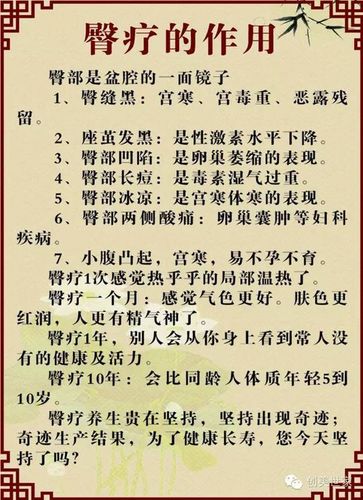 臀疗的作用
臀部是盆腔的一面镜子
1、臀缝黑：宫寒、宫毒重、恶露残
留。
2、座茧发黑：是性激素水平下降。
3、臀部凹陷：是卵巢萎缩的表现。
4、臀部长痘：是毒素湿气过重。
5、臀部冰凉：是宫寒体寒的表现。
6、臀部两侧酸痛：卵巢囊肿等妇科
疾病。
7、小腹凸起，宫寒，易不孕不育。
臀疗1次感觉热乎乎的局部温热了。
臀疗一个月：感觉气色更好。肤色更
红润，人更有精气神了。
臀疗1年，别人会从你身上看到常人没
有的健康及活力。
臀疗10年：会比同龄人体质年轻5到
10岁。
臀疗养生贵在坚持，坚持出现奇迹；
奇迹生产结果，为了健康长寿，您今天坚
持了吗？